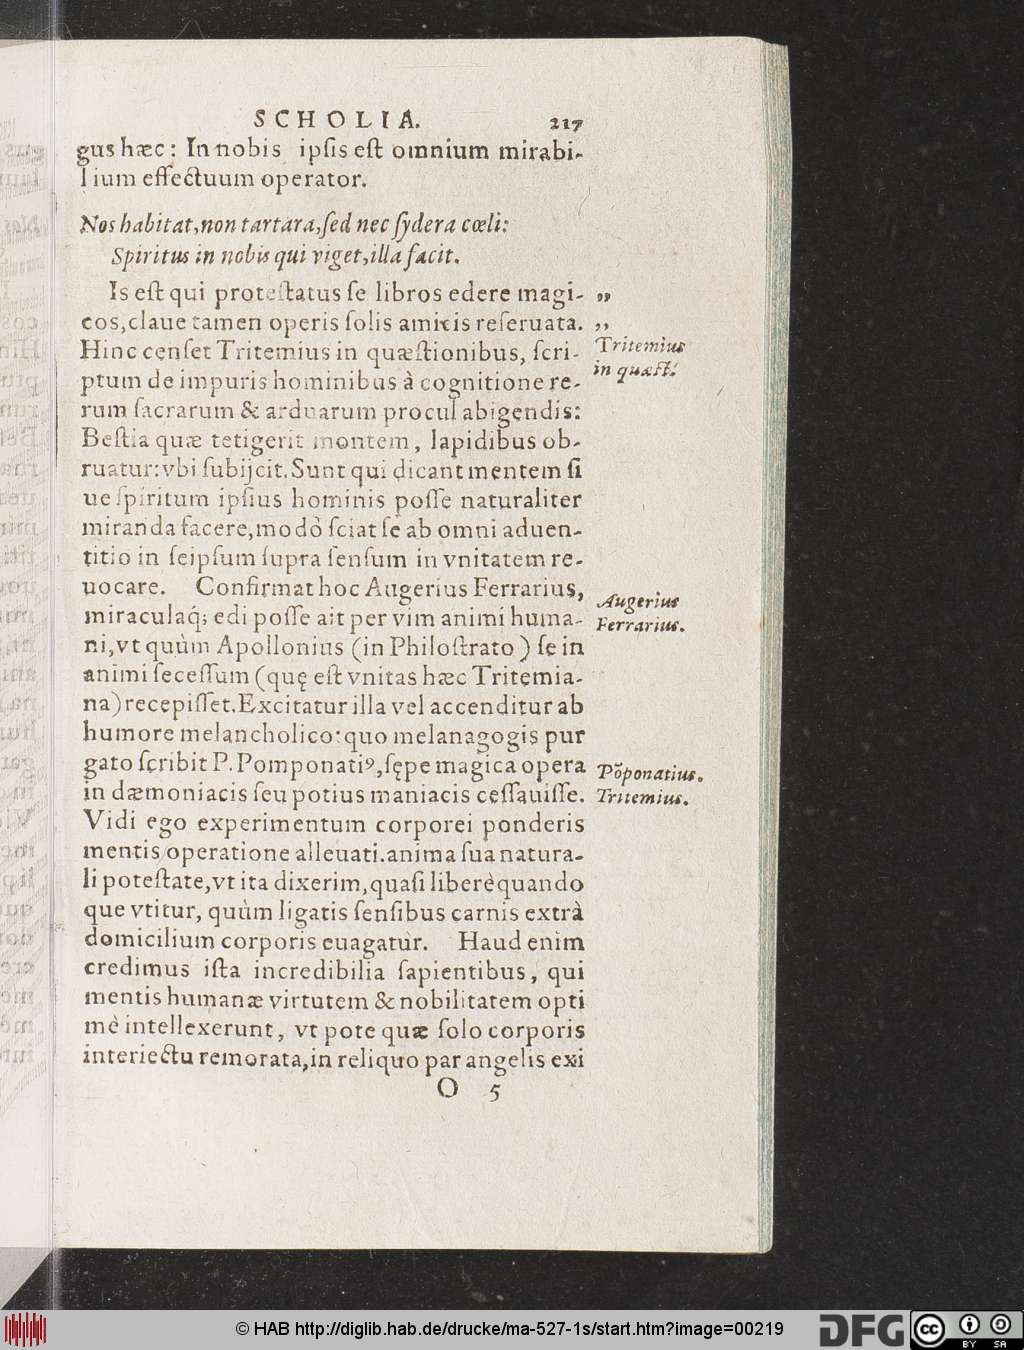 SCHOLIA. 217
gus hæc: In nobis ipſis eſt omnium mirabi-
lium effectuum operator.
Nos habitat, non tartara, ſed nec ſydera cœli:
Spiritus in nobis qui viget, illa facit.
Is eſt qui proteſtatus ſe libros edere magi- „
cos, claue tamen operis ſolis amicis reſeruata. „
Hinc cenſet Tritemius in quæſtionibus, ſcri-
Tritemius
in quæſt.
ptum de impuris hominibus à cognitione re-
rum ſacrarum & arduarum procul abigendis:
Beſtia quæ tetigerit montem, lapidibus ob-
ruatur: vbi ſubijcit. Sunt qui dicant mentem ſi
ue ſpiritum ipſius hominis poſſe naturaliter
miranda facere, modò ſciat ſe ab omni aduen-
titio in ſeipſum ſupra ſenſum in vnitatem re-
uocare. Confirmat hoc Augerius Ferrarius,
Augerius
Ferrarius.
miraculaq́; edi poſſe ait per vim animi huma-
ni, vt quùm Apollonius (in Philoſtrato) ſe in
animi ſeceſſum (quę eſt vnitas hæc Tritemia-
na) recepiſſet. Excitatur illa vel accenditur ab
humore melancholico: quo melanagogis pur
gato ſcribit P. Pomponatiꝰ, ſępe magica opera
Põponatius.
in dæmoniacis ſeu potius maniacis ceſſauiſſe.
Tritemius.
Vidi ego experimentum corporei ponderis
mentis operatione alleuati. anima ſua natura-
li poteſtate, vt ita dixerim, quaſi liberè quando
que vtitur, quùm ligatis ſenſibus carnis extrà
domicilium corporis euagatur. Haud enim
credimus iſta incredibilia ſapientibus, qui
mentis humanæ virtutem & nobilitatem opti
mè intellexerunt, vt pote quæ ſolo corporis
interiectu remorata, in reliquo par angelis exi
O 5
© HAB http://diglib.hab.de/drucke/ma-527-1s/start.htm?image=00219
DFG
cc BY SA